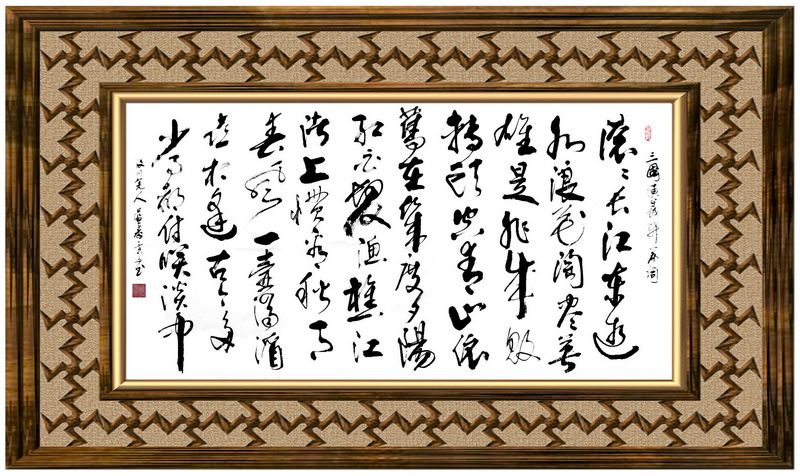 三國演義 词
滚〻长江东逝
水浪花淘尽英
雄是非成败
转头空青山依
舊在几度夕陽
红白髮渔樵江
渚上惯看秋月
春风一壶浊酒
喜相逢古今多
少事都付笑谈中